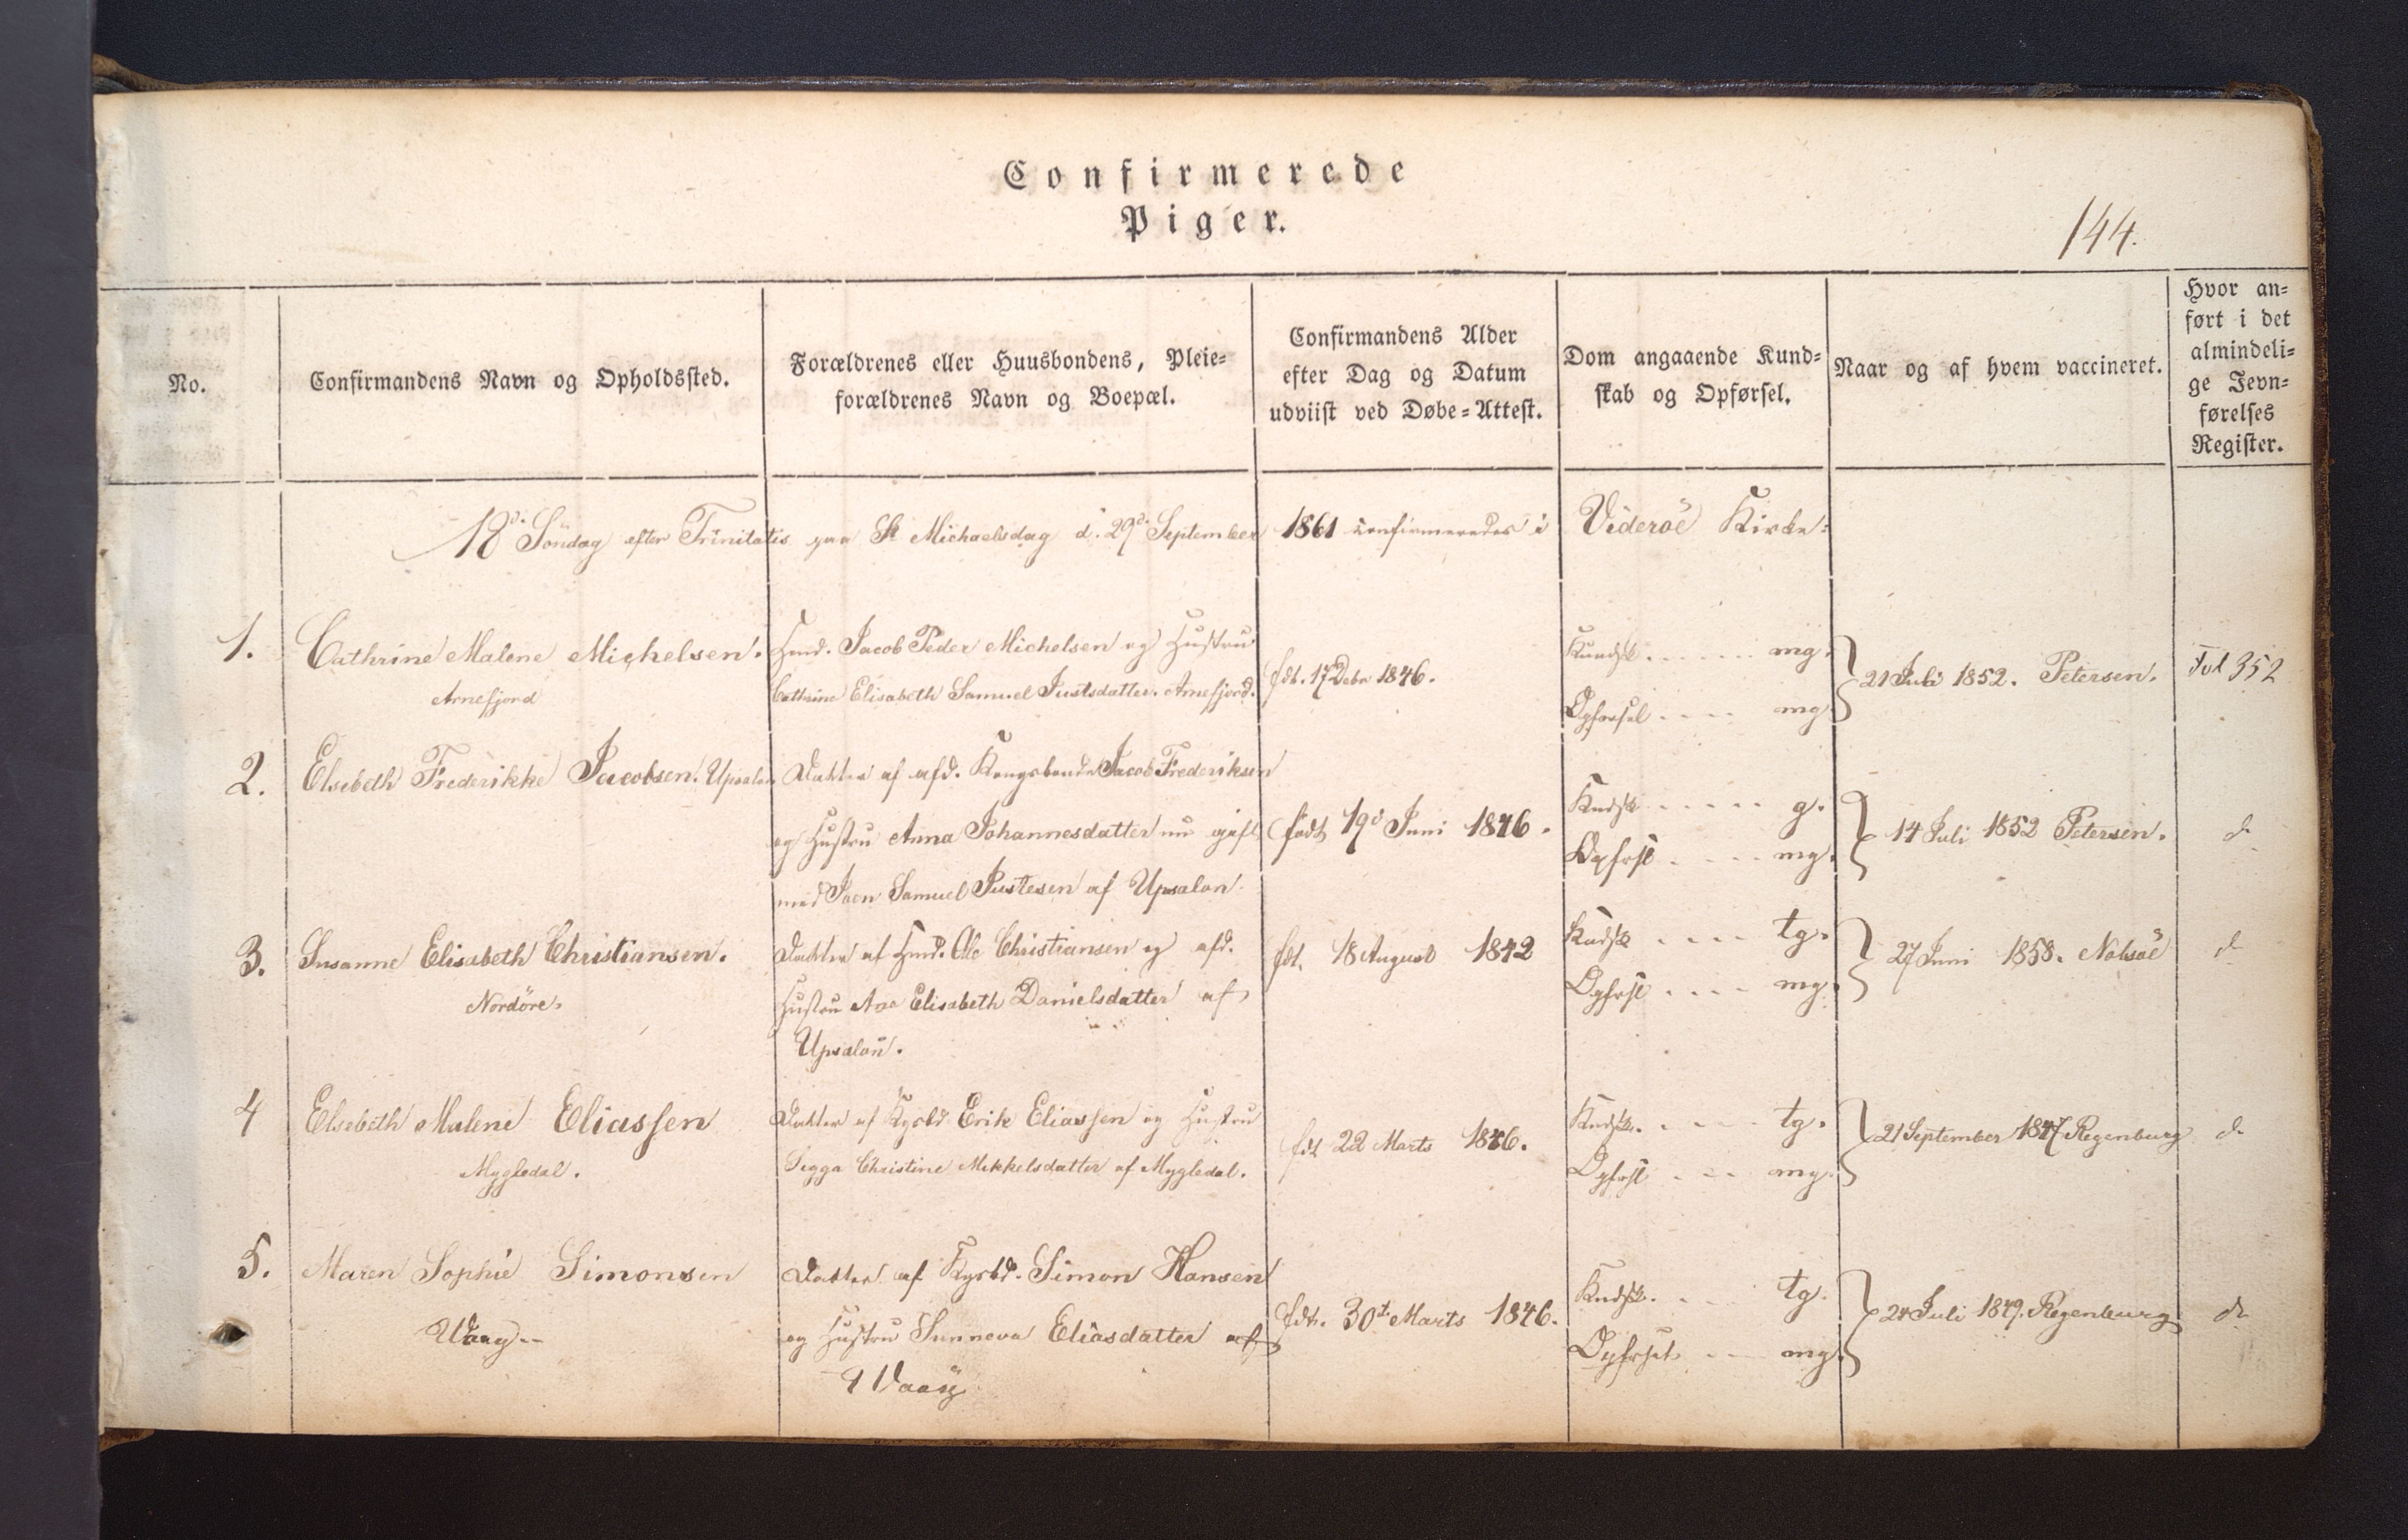 Confirmerede
Piger.
144.
No.
Confirmandens Navn og Opholdssted.
Forældrenes eller Huusbondens, Pleie=
forældrenes Navn og Boepæl.
Confirmandens Alder
efter Dag og Datum
udviist ved Døbe=Attest.
Dom angaaende Kund=
skab og Opførsel.
Naar og af hvem vaccineret.
Hvor an=
ført i det
almindeli=
ge Jevn=
førelses
Register.
18d. Söndag efter Trinitatis paa St Michaelsdag d. 29d. September 1861 confirmeredes i Videröe Kirke:
1.
Cathrine Malene Michelsen.
Arnefjord
Hmd. Jacob Peder Michelsen og Hustru
Cathrine Elisabeth Samuel Justsdatter. Arnefjord.
fdt. 17 Debr 1846.
Kundsk...... mg.
Opførsel .... mg
21 Juli 1852. Petersen.
Fol 352
2.
Elsebeth Frederikke Jacobsen. Upsalon
Datter af afd. Kongsbonde Jacob Frederiksen
og Hustru Anna Johannesdatter nu gift
med Joen Samuel Justesen af Upsalon
födt 19d Juni 1846.
Kndsk ..... g.
Opfrsl .... mg.
14 Juli 1852 Petersen.
do
3.
Susanne Elisabeth Christiansen.
Nordöre.
Datter af Hmd. Ole Christiansen og afd.
Hustru Ane Elisabeth Danielsdatter af
Upsalon.
fdt. 18 August 1842
Kndsk .... tg.
Opfrsl .... mg.
27 Juni 1858. Nolsöe
do
4
Elsebeth Malene Eliassen
Mygledal.
Datter af Kgsbd. Erik Eliassen og Hustru
Sigga Christine Mikkelsdatter af Mygledal.
fdt 22 Marts 1846.
Kndsk. .... tg.
Opfrsl ... mg.
21 September 1847 Regenburg
do
5.
Maren Sophie Simonsen
Waag--
Datter af Kgsbd. Simon Hansen
og Hustru Sunneva Eliasdatter af
Waag
fdt. 30t Marts 1846.
Kndsk. ... tg.
Opfrsel ... mg.
24 Juli 1849. Regenburg
do